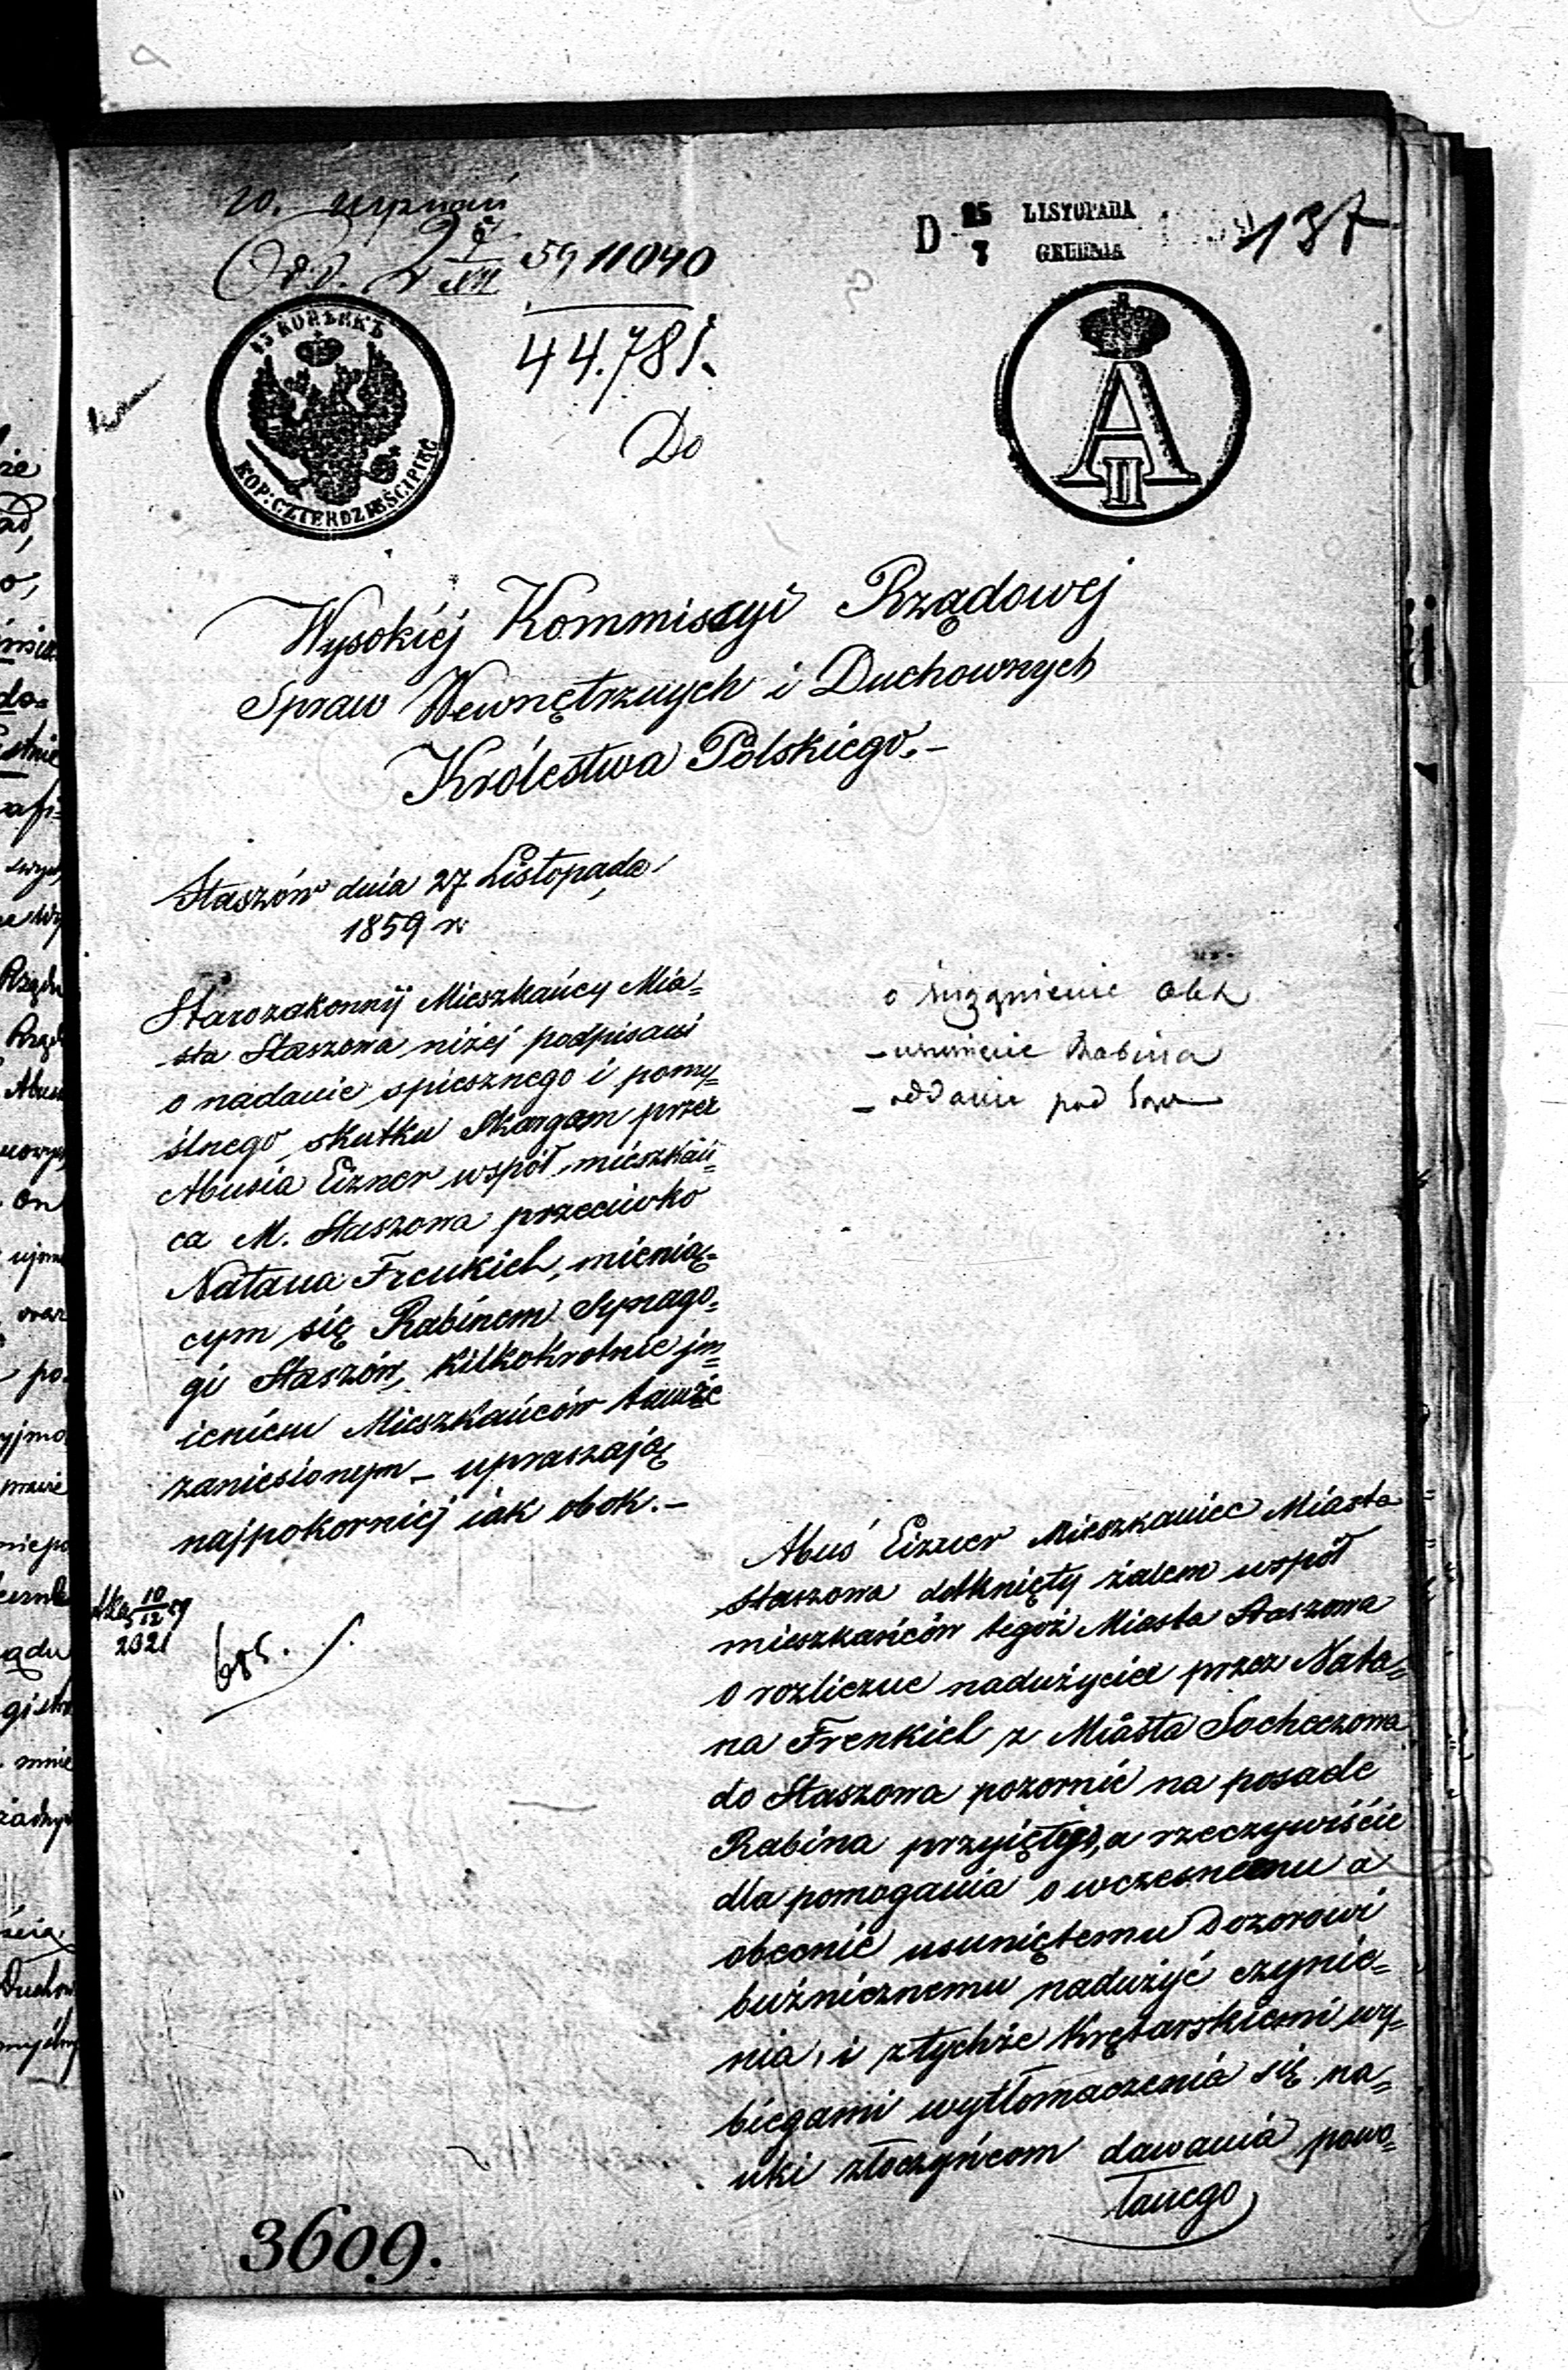 20.
59 11040
44.781.
D 25 LISTOPADA
7 GRUDNIA
137
15 КОПѢЕКЪ
KOP: CZTERDZIEŚCI PIĘĆ
A II
Do
Wysokiéj Kommissyi Rządowej
Spraw Wewnętrznych i Duchownych
Królestwa Polskiego.-
Staszów dnia 27 Listopada
1859 r
Starozakonnij Mieszkańcy Mia=
sta Staszowa niżéj podpisani
o nadanie spiesznego i pomy=
ślnego skutku Skargom przez
Abusia Eizner współ mieszkań=
ca M. Staszowa przeciwko
Natana Frenkiel, mienią=
cym się Rabinem Synago=
gi Staszów, kilkokrotnie im=
ieniem Mieszkańców tamże
zaniesionym - upraszają
najpokorniej iak obok.-
o
- usunienie Rabina
- oddanie pod
10
12 59
2021
685.
Abuś Eizner Mieszkaniec Miasta
Staszowa dotknięty żalem współ
mieszkańców tegoż Miasta Staszowa
o rozliczne nadużycia przez Nata=
na Frenkiel z Miasta Sochaczewa
do Staszowa pozornie na posade
Rabina przyiętego, a rzeczywiście
dla pomagania owczesnemu a
obecnie usuniętemu Dozorowi
bużnicznemu nadużyć czynie=
nia, i ztychże krętarskiemi wy=
biegami wytłomaczenia się na=
uki złoczyńcom dawania powo=
łanego
3609.